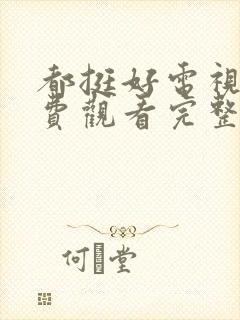 都挺好電視
費觀看完整
何堂